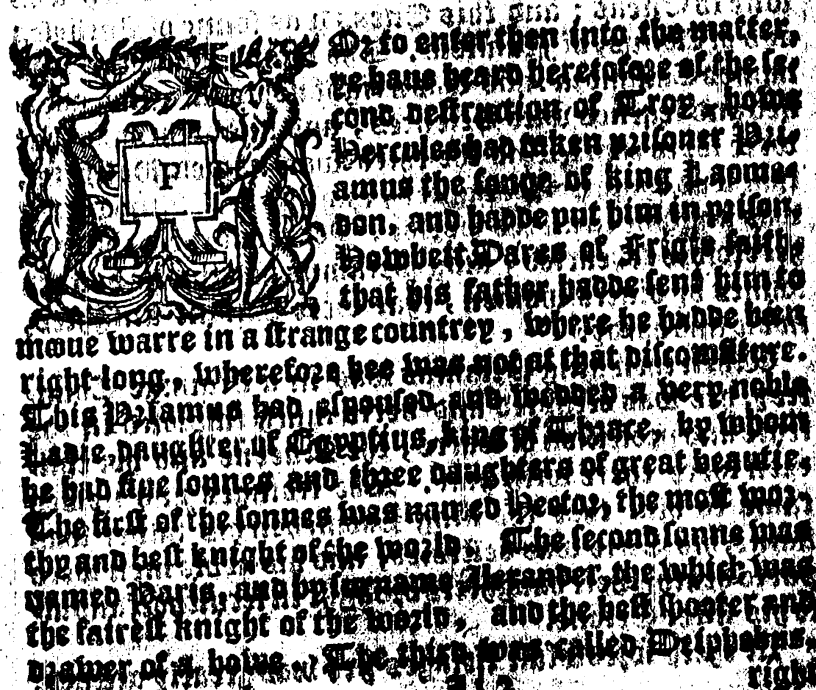 F
Or to enter then into the matter,
ye haue heard heretofore of the se-
cond destruction of Troy, howe
Hercules had taken prisoner Pri-
amus the sonne of king Laome-
don, and hadde put him in prison.
Howbeit Dares of Frigie saith,
that his father hadde sent him to
moue warre in a strange countrey, where he hadde been
right long, wherefore hee was not at that discomfiture.
This Priamus had espoused and wedded a very noble
Ladie, daughter of Egyptius, king of Thrace, by whom
he had fiue sonnes and three daughters of great beautie.
The first of the sonnes was named Hector, the most wor-
thy and best knight of the world. The second sonne was
named Paris, and by surname Alexander, the which was
the fairest knight of the world, and the best shooter and
drawer of a bowe. The third was called Deiphebus,
right